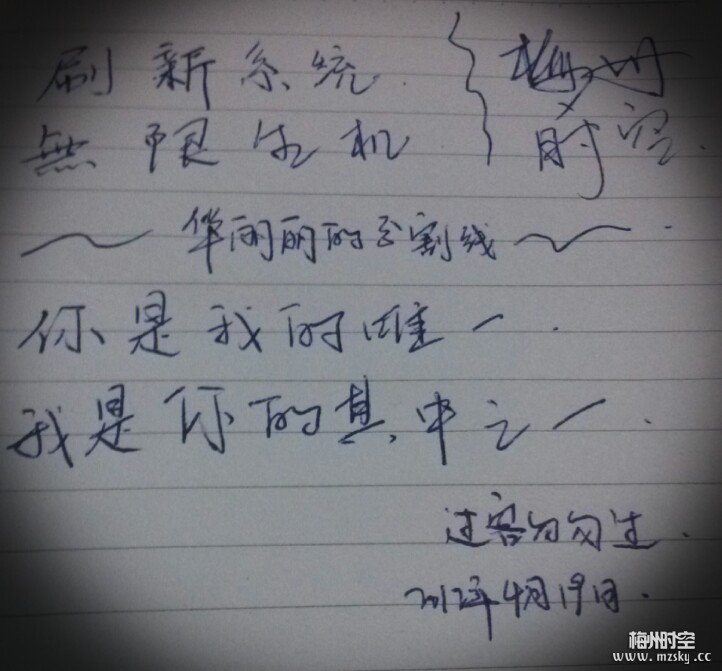 刷新系统.
無限生机
梅州
时空.
华丽丽的分割线
你是我的唯一.
我是你的其中之一.
过客匆匆过.
2012年4月19日.
梅州时空
www.mzsky.cc